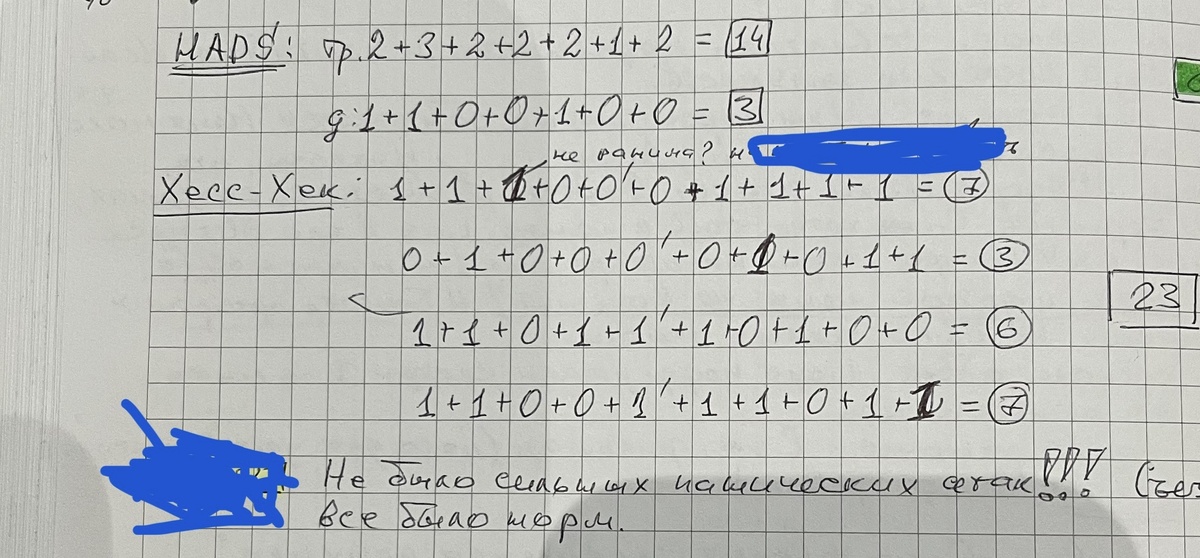 HADS: тр. 2+3+2+2+2+1+2 = 14
g: 1+1+0+0+1+0+0 = 3
не ранила? н
Хесс-Хек: 1+1+1+0+0'+0+1+1+1+1 = 7
0+1+0+0+0'+0+1+0+1+1 = 3
23
1+1+0+1+1'+1+0+1+0+0 = 6
1+1+0+0+1'+1+1+0+1+1 = 7
Не было сильных панических атак!!!
все было норм.